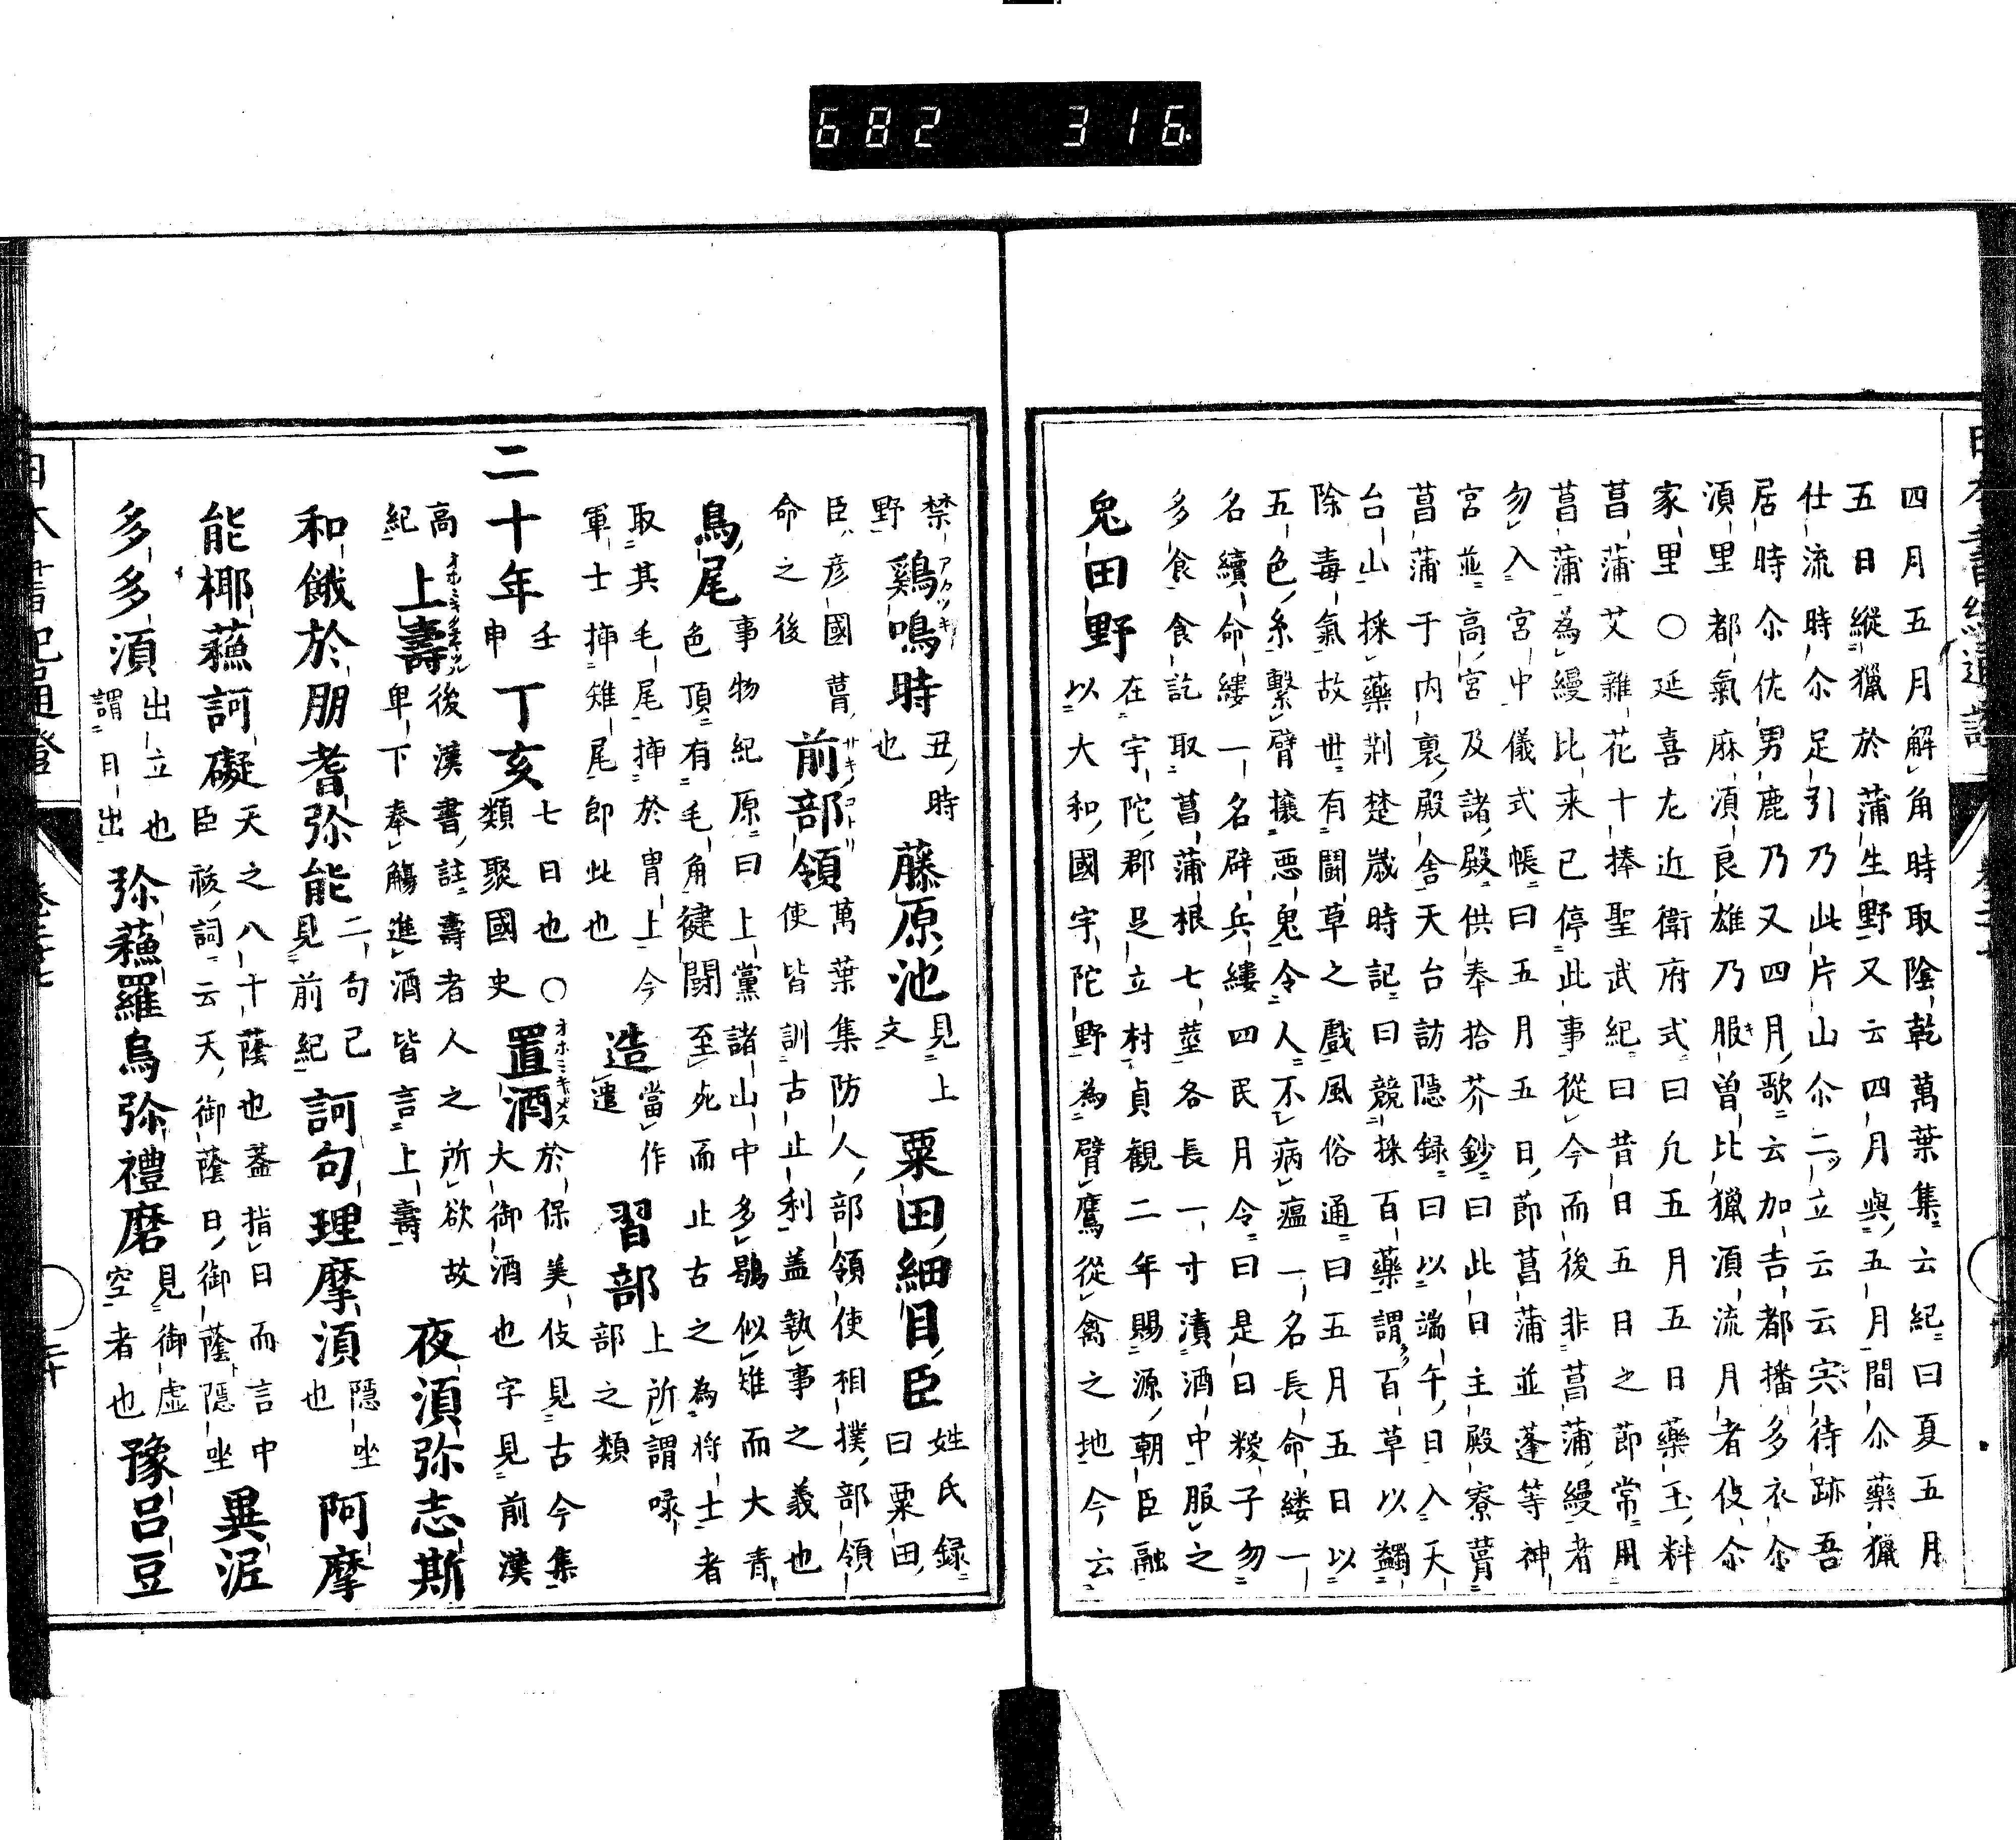 682 316
四月五月解角時取陰乾萬葉集云紀曰夏五月
五日縱獵於蒲生野又云四月與五月間尒藥獵
仕流時尒足引乃此片山尒二ッ立云云宍待跡吾
居時尒佐男鹿乃又四月歌云加吉都播多衣尒
須里都氣麻須良雄乃服曽比獵須流月者伎尒
家里〇延喜左近衛府式曰凡五月五日藥玉料
菖蒲艾雜花十捧聖武紀曰昔日五日之節常用
菖蒲為縵比来已停此事從今而後非菖蒲縵者
勿入宮中儀式帳曰五月五日節菖蒲並蓬等神
宮並高宮及諸殿供奉拾芥鈔曰此日主殿寮葺
菖蒲于内裏殿舎天台訪隠録曰以端午日入天
台山採藥荆楚歳時記曰競採百藥謂百草以蠲
除毒氣故世有鬪草之戲風俗通曰五月五日以
五色糸繫臂攘惡鬼令人不病瘟一名長命縷一
名續命縷一名辟兵縷四民月令曰是日糉子勿
多食食訖取菖蒲根七莖各長一寸漬酒中服之
兔田野
在宇陀郡足立村貞観二年賜源朝臣融
以大和國宇陀野為臂鷹從禽之地今云
禁
野
鷄鳴時
アカツキ
丑時
也
藤原池
見上
文
粟田細目臣
姓氏録
曰粟田
臣彦國葺
命之後
前部領
サキノコトリ
萬葉集防人部領使相撲部領
使皆訓古止利盖執事之義也
鳥尾
事物紀原曰上黨諸山中多鶡似雉而大青
色頂有毛角健鬪至死而止古之為将士者
取其毛尾挿於冑上今
軍士挿雉尾即此也
造
當作
遣
習部
上所謂㖨
部之類
二十年
壬
申
丁亥
七日也〇
類聚國史
置酒
オホミキメス
於保美伎見古今集
大御酒也字見前漢
高
紀
上壽
オホミキタテマツル
後漢書註壽者人之所欲故
卑下奉觴進酒皆言上壽
夜須弥志斯
和餓於朋耆弥能
二句已
見前紀
訶句理摩須
隠坐
也
阿摩
能椰蘓訶礙
天之八十蔭也蓋指日而言中
臣祓詞云天御蔭日御蔭隠坐
異泥
多多須
出立也
謂日出
弥蘓羅烏弥禮磨
見御虚
空者也
豫呂豆